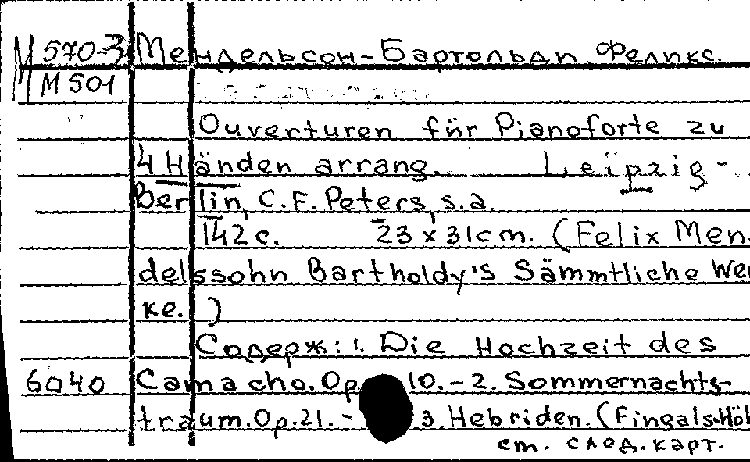 М 570-3 Мендельсон-Бартольди Феликс.
М 501
Ouverturen für Pianoforte zu
4 Händen arrang. Leipzig-
Berlin, C.F. Peters, s.a.
142 c. 23 x 31 cm. (Felix Men-
delssohn Bartholdy's Sämmtliche Wer
ke.)
Содерж: 1. Die Hochzeit des
6040 Camacho. Op. 10. - 2. Sommernachts-
traum. Op. 21. - 3. Hebriden. (Fingals-Höh
см. след. карт.